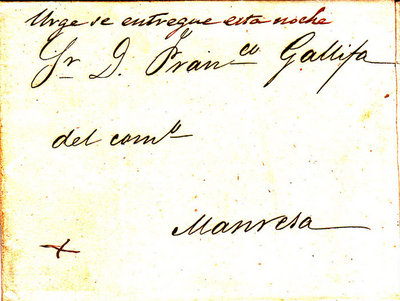 Urge se entregue esta noche
Sr D. Franco Gallifa
del como
Manresa